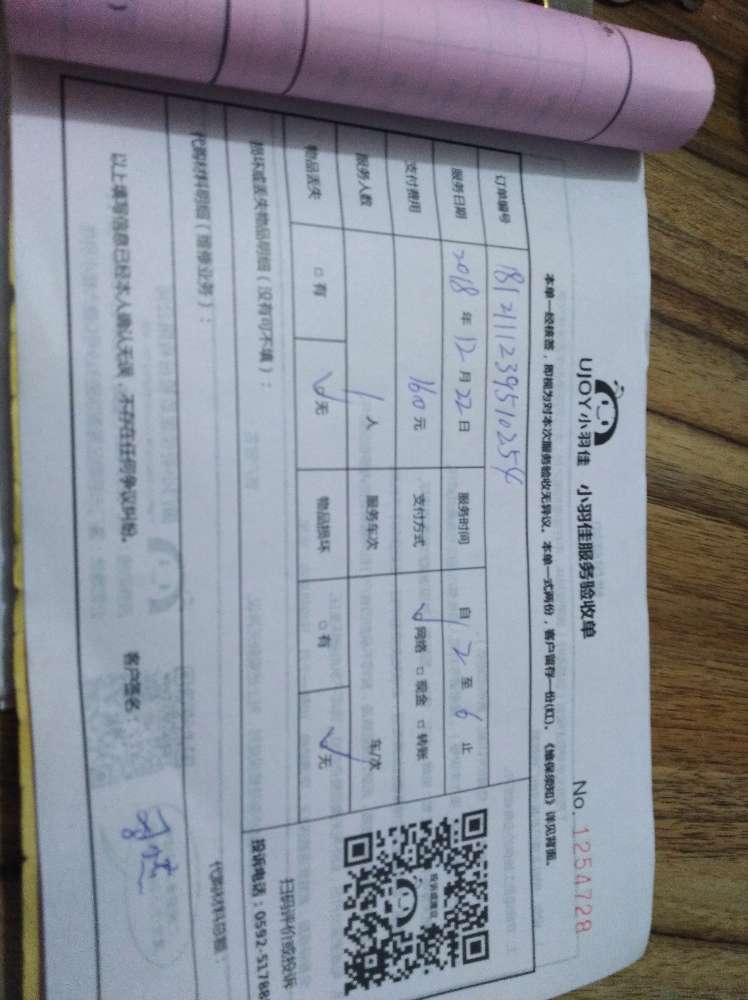 UJOY小羽佳 小羽佳服务验收单
No. 1254728
本单一经核签，即视为对本次服务验收无异议。本单一式两份，客户留存一份(红)。《维保须知》详见背面。
订单编号 181211123951025
服务日期 2018 年 12 月 22 日 服务时间 自 2 至 6 止
支付费用 160 元 支付方式 网络 □ 现金 □ 转账
服务人数 1 人 服务车次 车/次
物品丢失 □ 有 无 物品损坏 □ 有 无
损坏或丢失物品明细（没有可不填）：
扫码评价或投诉
投诉电话：0592-51788
代购材料明细（维修业务）： 代购材料总额：
以上填写信息已经本人确认无误，不存在任何争议纠纷。 客户签名：